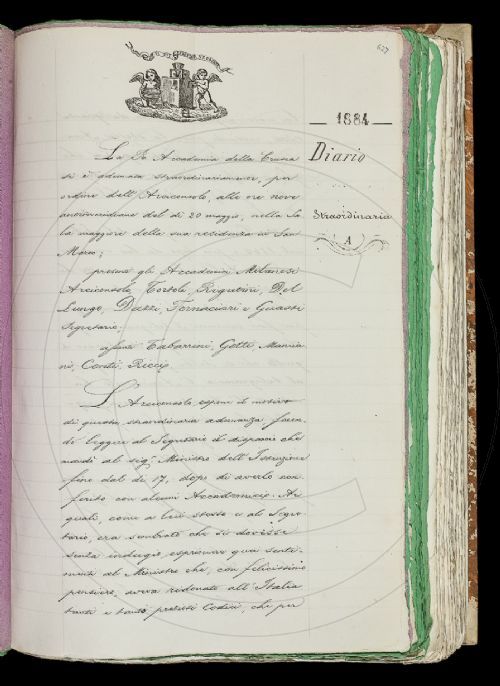 627
1884
Diario
Straordinaria
A
La R. Accademia della Crusca
si è adunata straordinariamente, per
ordine dell'Arciconsolo, alle ore nove
antimeridiane del dì 20 maggio, nella Sa
la maggiore della sua residenza in San
Marco;
presenti gli Accademici Milanesi
Arciconsolo, Tortoli, Rigutini, Del
Lungo, Dazzi, Fornaciari e Guasti
Segretario;
assenti Tabarrini, Gotti, Mamia
ni, Conti, Ricci.
L'Arciconsolo espone il motivo
di questa straordinaria adunanza facen
do leggere al Segretario il dispaccio che
mandò al sig.r Ministro dell'Istruzione
fino dal dì 17, dopo di averlo con
ferito con alcuni Accademici. Ai
quali, come a lui stesso e al Segre
tario, era sembrato che si dovesse
senza indugio esprimere quei senti
menti al Ministro che, con felicissimo
pensiero, aveva ridonato all'Italia
tanti e tanto preziosi Codici, che per